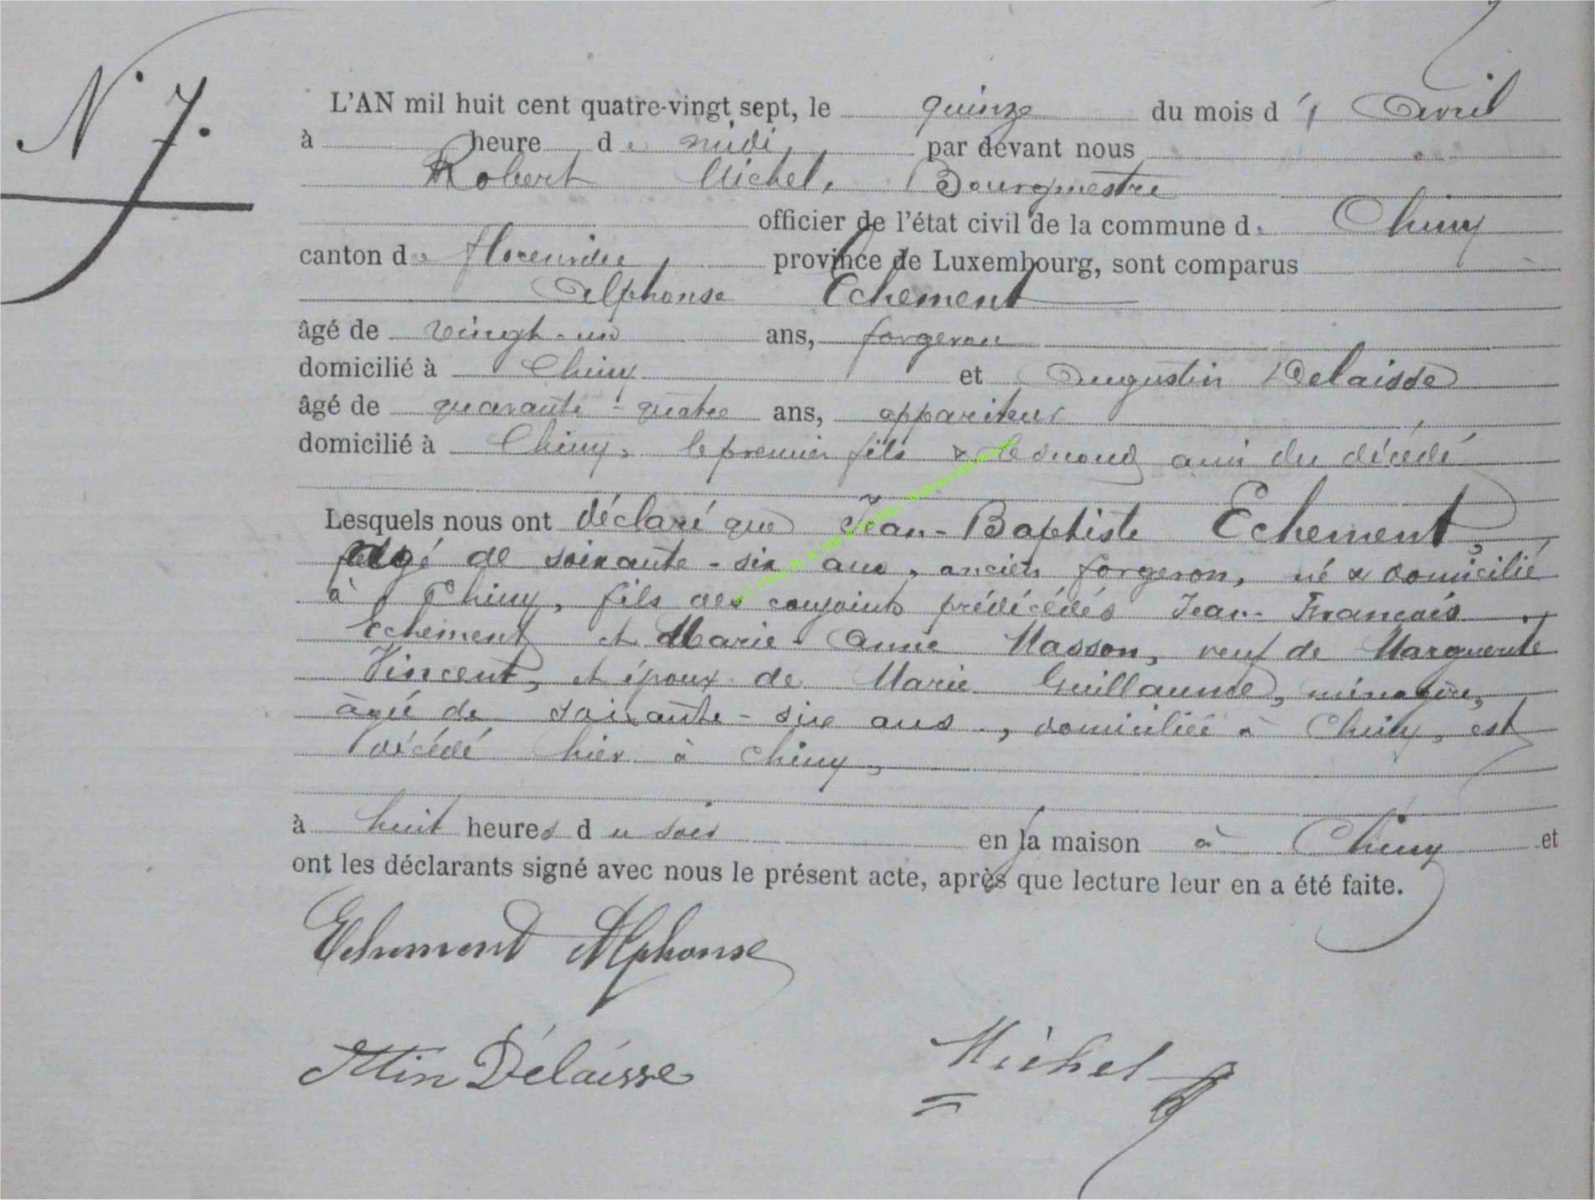 N° 7.
L'AN mil huit cent quatre-vingt sept, le quinze du mois d' Avril
à heure de midi, par devant nous
Robert Michel, Bourgmestre
officier de l'état civil de la commune de Chiny
canton de florenville, province de Luxembourg, sont comparus
Alphonse Echement
âgé de vingt-un ans, forgeron
domicilié à Chiny et Augustin Delaisse
âgé de quarante-quatre ans, appariteur
domicilié à Chiny, le premier fils & le second ami du décédé
Lesquels nous ont déclaré que Jean-Baptiste Echement,
âgé de soixante-six ans, ancien forgeron, né & domicilié
à Chiny, fils des conjoints prédécédés Jean-François
Echement et Marie-Anne Masson, veuf de Marguerite
Vincent, et époux de Marie Guillaume, ménagère,
âgée de soixante-six ans, domiciliée à Chiny, est
décédé hier à Chiny,
à huit heures du soir en la maison à Chiny et
ont les déclarants signé avec nous le présent acte, après que lecture leur en a été faite.
Echement Alphonse
Délaisse
Michel